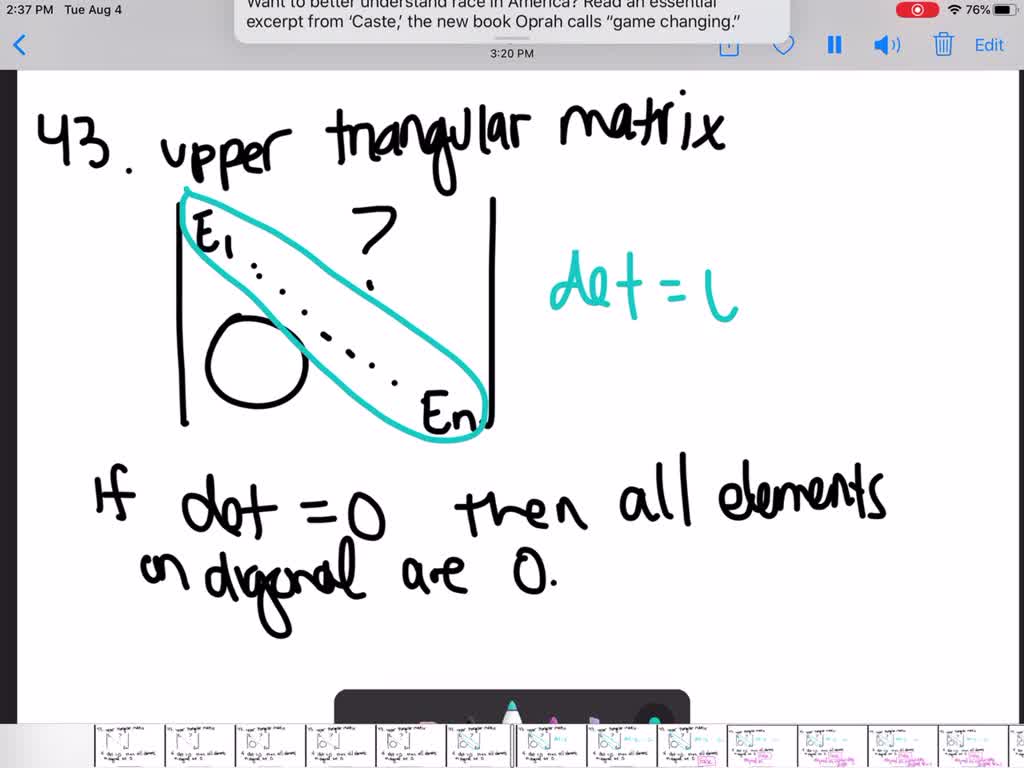 2:37 PM Tue Aug 4
76%
Want to better understand race in America? Read an essential
excerpt from ‘Caste,’ the new book Oprah calls “game changing.”
3:20 PM
Edit
43. upper triangular matrix
E1 ?
0
En
det =
If det = 0 then all elements
on digonal are 0.